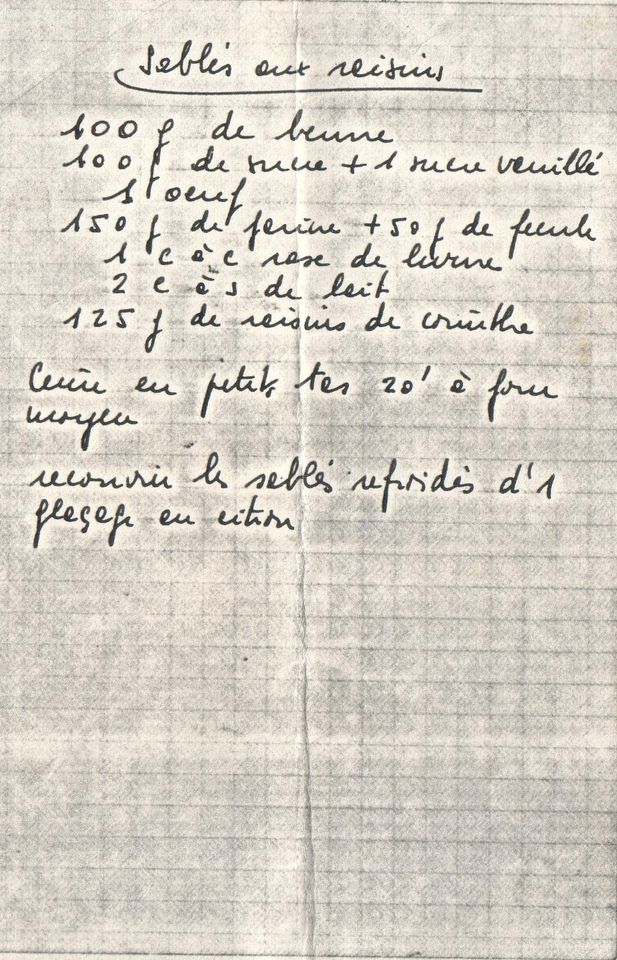 Sablés aux raisins
100 g de beurre
100 g de sucre + 1 sucre vanillé
1 oeuf
150 g de farine + 50 g de fécule
1 c à c rase de levure
2 c à s de lait
125 g de raisins de corinthe
Cuire en petits tas 20' à four
moyen
recouvrir les sablés refroidis d'1
glaçage au citron